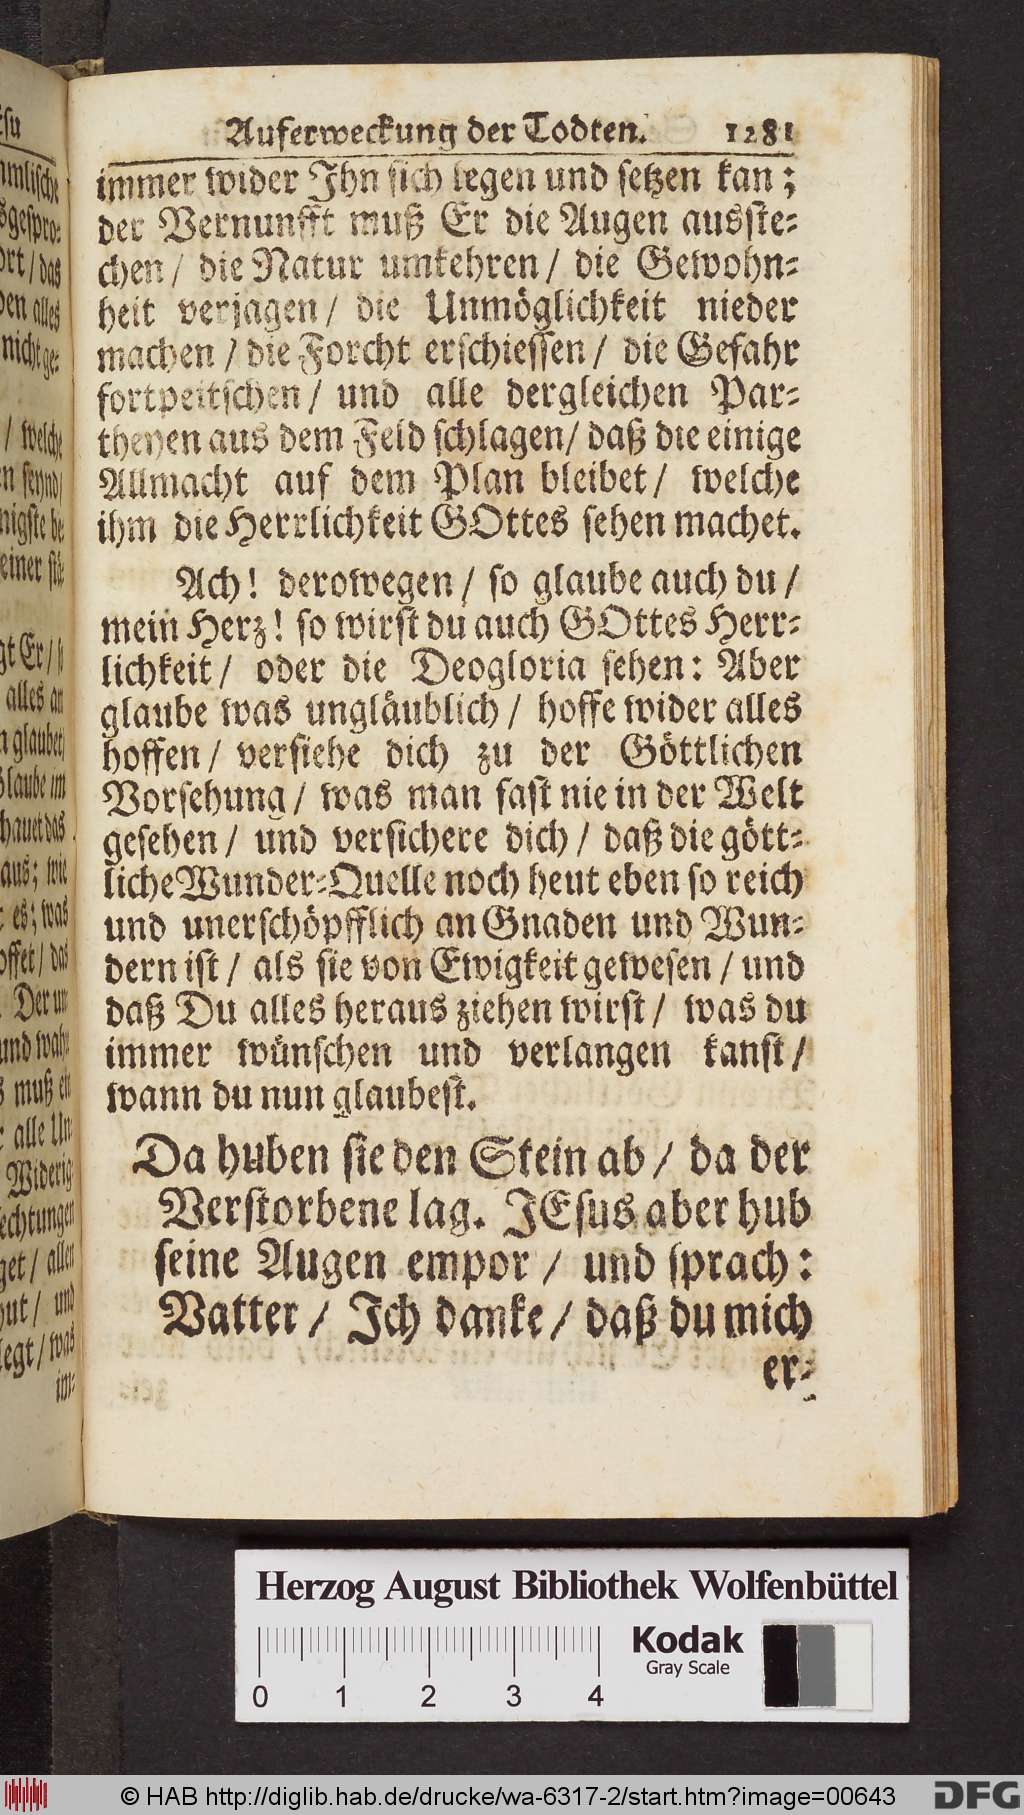 Auferweckung der Todten. 1281
immer wider Ihn sich legen und setzen kan;
der Vernunfft muß Er die Augen ausste-
chen / die Natur umkehren / die Gewohn-
heit verjagen / die Unmöglichkeit nieder
machen / die Forcht erschiessen / die Gefahr
fortpeitschen / und alle dergleichen Par-
theyen aus dem Feld schlagen / daß die einige
Allmacht auf dem Plan bleibet / welche
ihm die Herrlichkeit GOttes sehen machet.
Ach! derowegen / so glaube auch du /
mein Herz! so wirst du auch GOttes Herr-
lichkeit / oder die Deogloria sehen: Aber
glaube was ungläublich / hoffe wider alles
hoffen / versiehe dich zu der Göttlichen
Vorsehung / was man fast nie in der Welt
gesehen / und versichere dich / daß die gött-
liche Wunder-Quelle noch heut eben so reich
und unerschöpfflich an Gnaden und Wun-
dern ist / als sie von Ewigkeit gewesen / und
daß Du alles heraus ziehen wirst / was du
immer wünschen und verlangen kanst /
wann du nun glaubest.
Da huben sie den Stein ab / da der
Verstorbene lag. JEsus aber hub
seine Augen empor / und sprach:
Vatter / Ich danke / daß du mich
er-
Herzog August Bibliothek Wolfenbüttel
Kodak
Gray Scale
0 1 2 3 4
© HAB http://diglib.hab.de/drucke/wa-6317-2/start.htm?image=00643
DFG